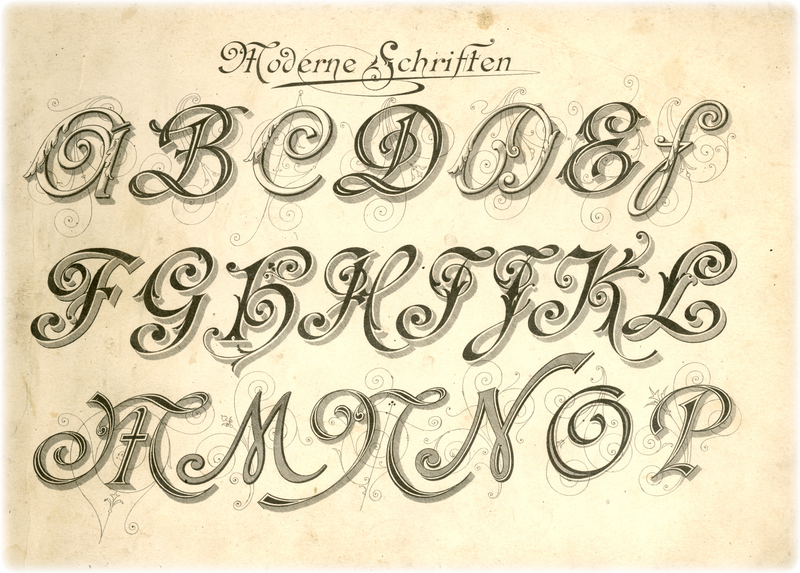 Moderne Schriften
A B C D D E f
F G H H I J K L
M M N N O P